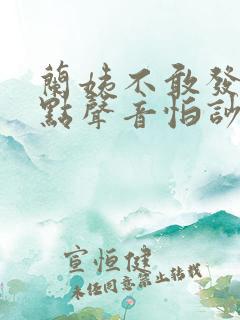 蘭姨不敢發
點聲音怕訬
宣恒健
未经同意禁止转载